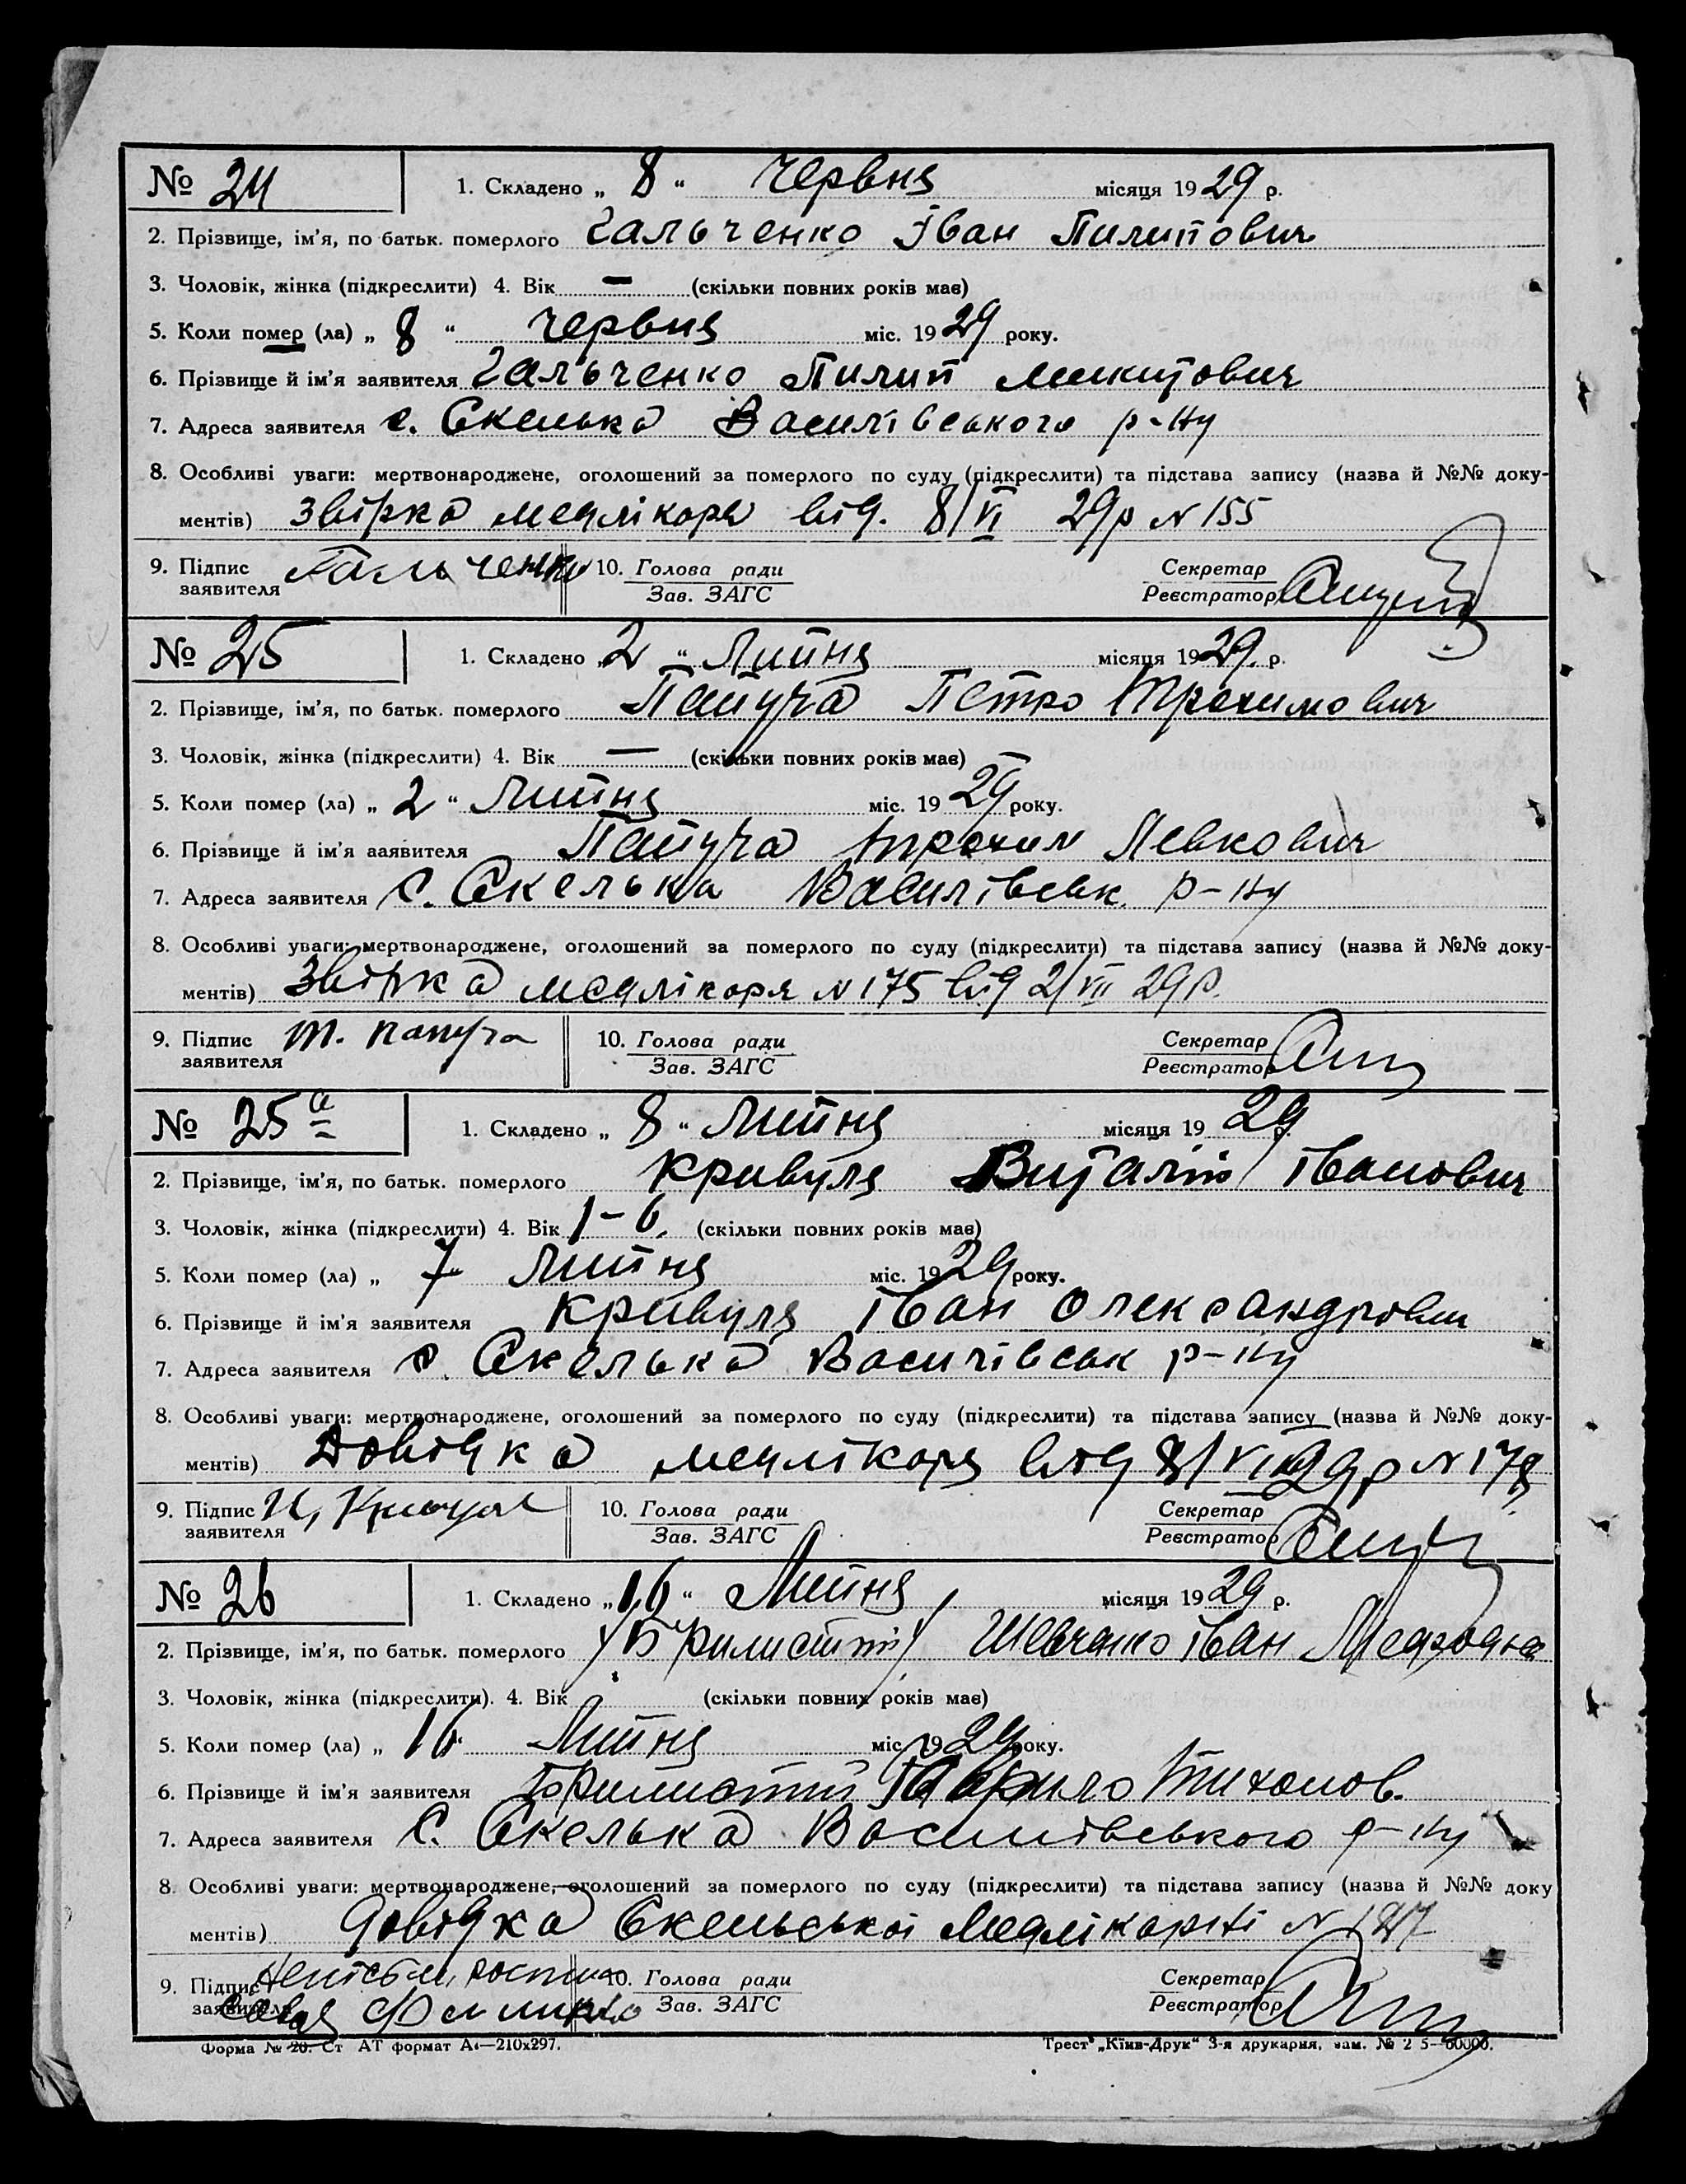 № 24 1. Складено „ 8 “ Червня місяця 19 29 р.
2. Прізвище, ім’я, по батьк. померлого Гальченко Іван Пилипович
3. Чоловік, жінка (підкреслити) 4. Вік — (скільки повних років має)
5. Коли помер (ла) „ 8 “ Червня міс. 19 29 року.
6. Прізвище й ім’я заявителя Гальченко Пилип Микитович
7. Адреса заявителя с. Скелька Василівського р-ну
8. Особливі уваги: мертвонароджене, оголошений за померлого по суду (підкреслити) та підстава запису (назва й №№ доку-
ментів) Звірка медлікаря від. 8/VI 29р N 155
9. Підпис заявителя Гальченко 10. Голова ради Зав. ЗАГС Секретар Реєстратор
№ 25 1. Складено „ 2 “ Липня місяця 19 29 р.
2. Прізвище, ім’я, по батьк. померлого Папуча Петро Трохимович
3. Чоловік, жінка (підкреслити) 4. Вік — (скільки повних років має)
5. Коли помер (ла) „ 2 “ Липня міс. 19 29 року.
6. Прізвище й ім’я ааявителя Папуча Трохим Левкович
7. Адреса заявителя с. Скелька Василівськ. р-ну
8. Особливі уваги: мертвонароджене, оголошений за померлого по суду (підкреслити) та підстава запису (назва й №№ доку-
ментів) Звірка медлікаря N 175 від 2/VII 29р.
9. Підпис заявителя Т. Папуча 10. Голова ради Зав. ЗАГС Секретар Реєстратор
№ 25а 1. Складено „ 8 “ Липня місяця 19 29 р.
2. Прізвище, ім’я, по батьк. померлого Кривуля Виталій Іванович
3. Чоловік, жінка (підкреслити) 4. Вік 1-6. (скільки повних років має)
5. Коли помер (ла) „ 7 “ Липня міс. 19 29 року.
6. Прізвище й ім’я заявителя Кривуля Іван Олександрович
7. Адреса заявителя с. Скелька Василівськ р-ну
8. Особливі уваги: мертвонароджене, оголошений за померлого по суду (підкреслити) та підстава запису (назва й №№ доку-
ментів) Довідка медлікаря від 8/VII 29р N
9. Підпис заявителя И. Кривуля 10. Голова ради Зав. ЗАГС Секретар Реєстратор
№ 26 1. Складено „ 16 “ Липня місяця 19 29 р.
2. Прізвище, ім’я, по батьк. померлого Шевченко Іван
3. Чоловік, жінка (підкреслити). 4. Вік (скільки повних років має)
5. Коли помер (ла) „ 16 “ Липня міс. 19 29 року.
6. Прізвище й ім’я заявителя Гаврило Тихонов.
7. Адреса заявителя с. Скелька Василівського р-ну
8. Особливі уваги: мертвонароджене, оголошений за померлого по суду (підкреслити) та підстава запису (назва й №№ доку
ментів) Довідка Скельської Медлікарні N
9. Підпис заявителя 10. Голова ради Зав. ЗАГС Секретар Реєстратор
Форма № 20. Ст АТ формат А4—210х297. Трест „Київ-Друк“ 3-я друкарня, зам. № 2 5—60000.